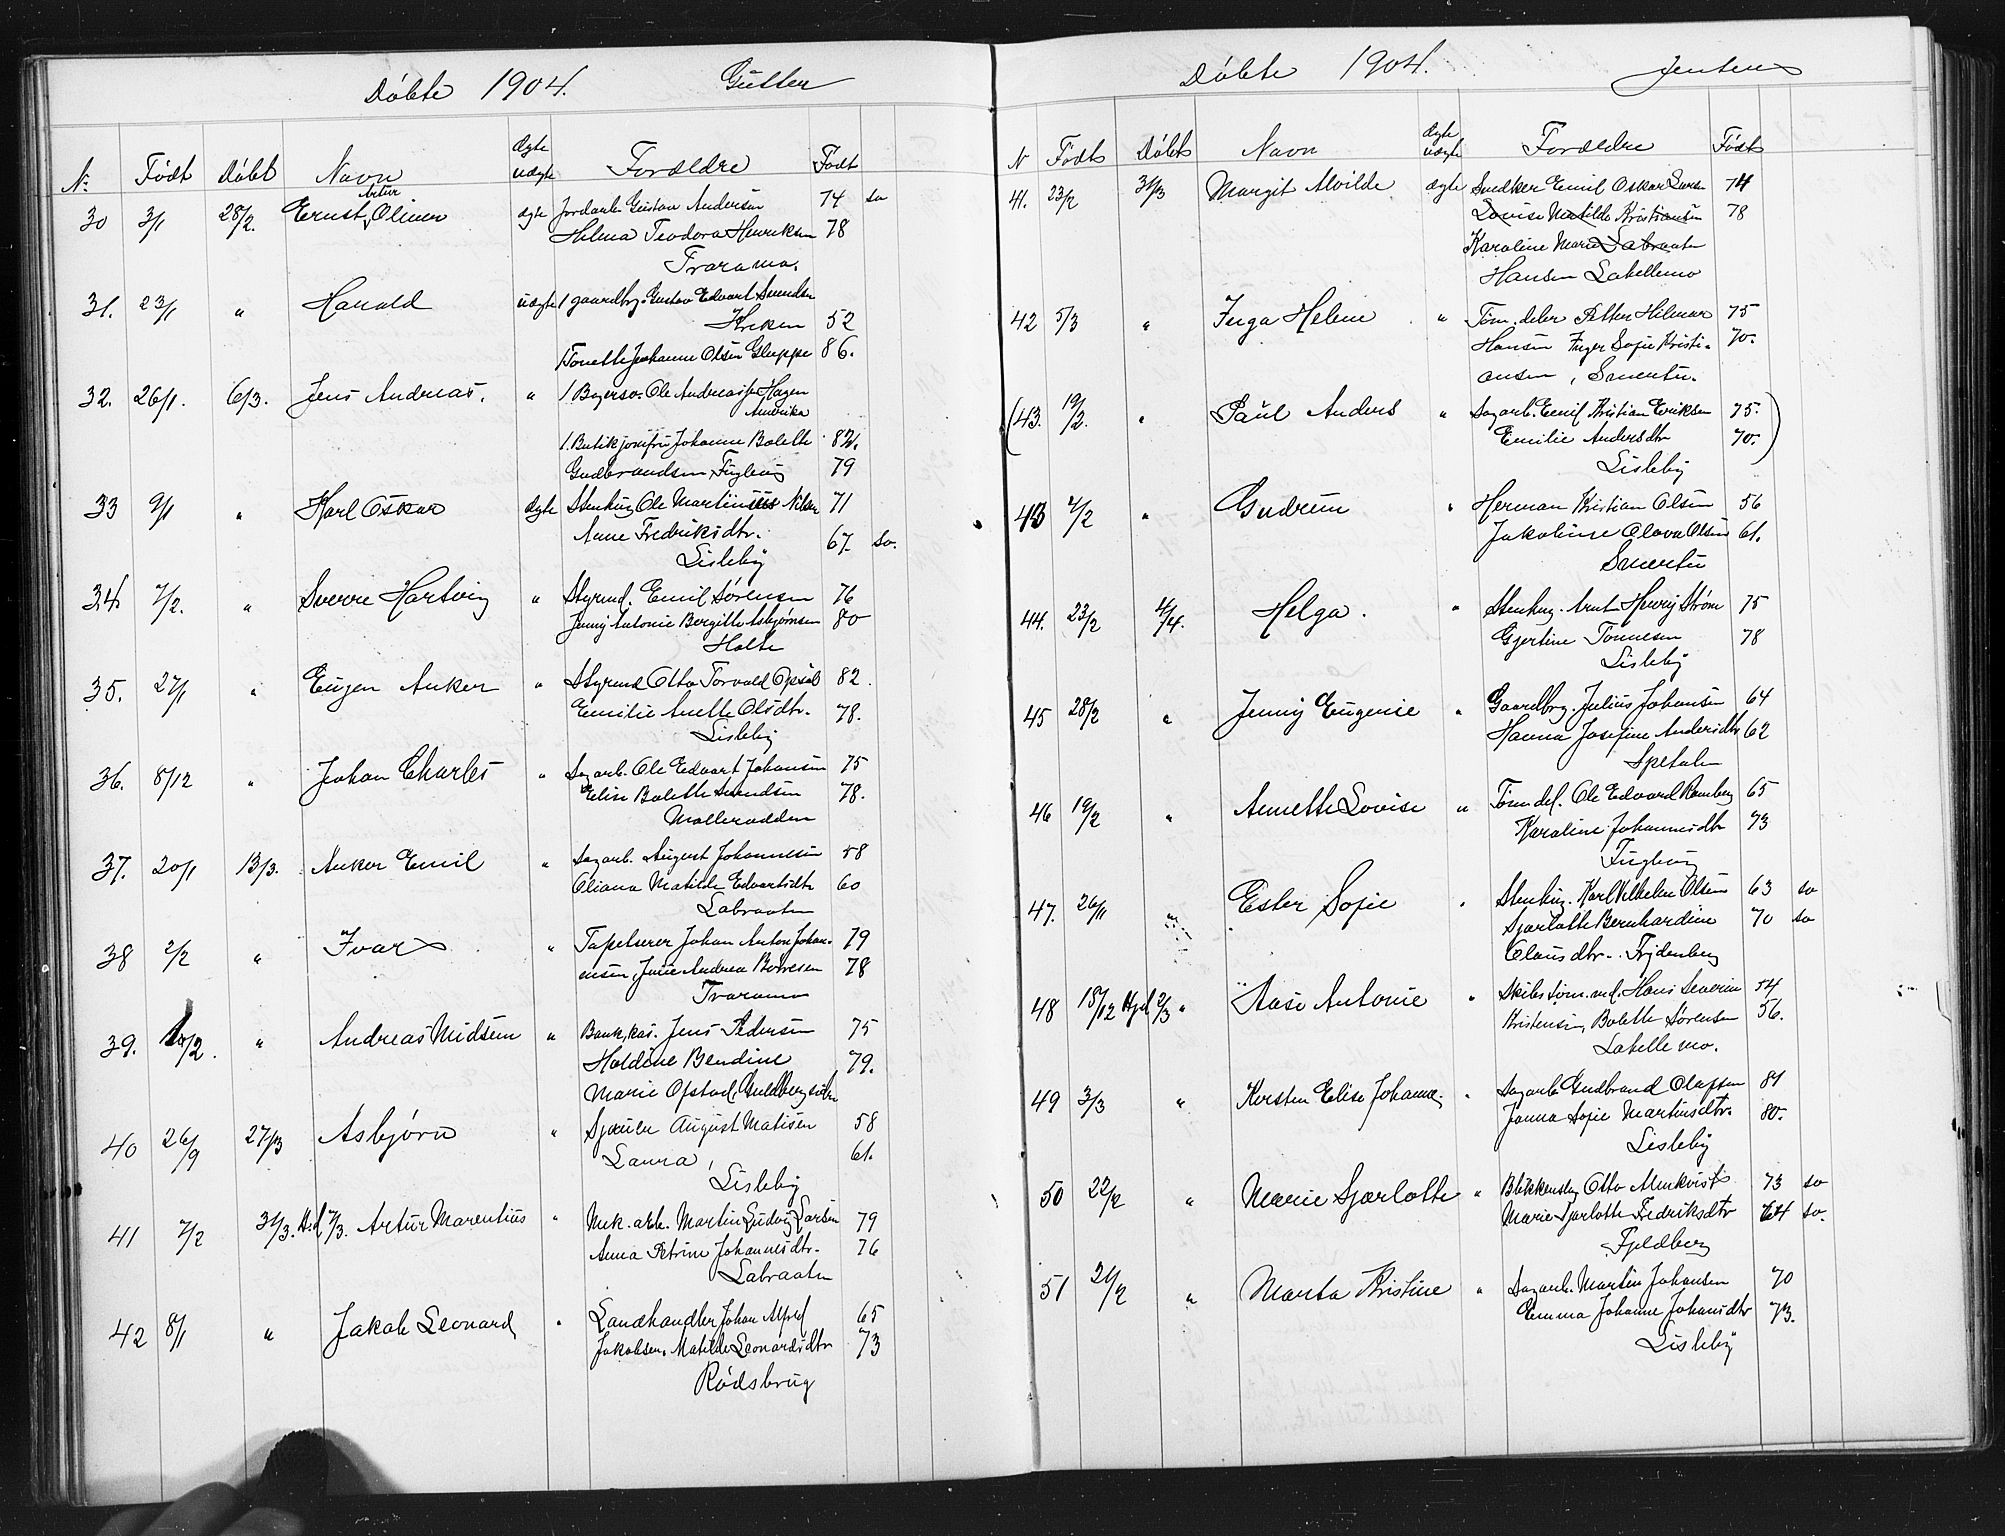 Döbte 1904. Gutter
No Födt Döbt Navn ægte uægte Forældre Födt
30 3/1 28/2. Ernst Artur Oliver ægte Jordarb. Gustav Andersen 74 so
Helena Teodora Henriksen 78
Traramo.
31. 23/1 " Harald uægte / gaardbr. Gustav Edvart Svendsen
Kreken 52
/ Tonette Johanne Olsen Gluppe 86.
32. 26/1. 6/3. Jens Andreas. " / Bøgersv. Ole Andreas Hagen
Amerika
/. Butikjomfru Johanne Bolette 82.
Gudbrandsen Fuglevig 79
33 9/1 " Karl Oskar ægte Stenhug. Ole Martinius Nilsen 71
Anne Fredriksdtr. 67. so.
Lisleby
34 7/2. " Sverre Hartvig " Styrmd. Emil Sørensen 76
Jenny Antonie Bergitte Asbjørnsen 80
Holte
35. 27/1 " Eugen Anker " Styrmd Otto Torvald Opsal 82.
Emilie Anette Olsdtr. 78.
Lisleby
36. 8/12 " Johan Charles " Sagarb. Ole Edvart Johansen 75
Elise Bolette Svendsen 78.
Mollerodden
37. 20/1 13/3. Anker Emil " Sagarb. August Johannesen 58
Oliana Matilde Edvartsdtr 60
Labraaten
38 2/2 " Ivar " Tapetserer Johan Anton Johan- 79
nesen, Julie Andrea Borresen 78
Traramo
39. 10/2. " Andreas Midsem " Bank, kas. Jens Pedersen 75
Haldine Bendine 79.
Marie Opstad, Guldbergsiden
40 26/9 27/3 Asbjørn " Sjauer August Matisen 58
Laura, 61.
Lisleby
41 7/2 31/3. H.d 7/3. Artur Marentius " Mek. arb. Martin Ludvig Larsen 79
Anna Petrine Johannesdtr. 76
Labraaten
42 8/1 " Jakob Leonard " Landhandler Johan Alfred 65
Jakobsen. Matilde Leonardsdtr 73
Rödsbrug
Döbte 1904. Jenter
N Födt Döbt Navn ægte uægte Forældre Födt
41. 23/2 31/3 Margit Alvilde ægte Snedker Emil Oskar Larsen 74
Lovise Matilde Kristiansen 78
Karoline Marie Labraaten
Hansen Labellemo
42 5/3 " Inga Helene " Töm. deler Petter Hilmar 75
Hansen Inger Sofie Kristi- 70.
ansen, Smertu.
(43. 19/2. " Paul Anders " Sagarb. Emil Kristian Eriksen 75.)
Emilie Andersdtr 70.
Lisleby
43 7/2 " Gudrun " Herman Kristian Olsen 56
Jakobine Olava Olsen 61.
Smertu
44. 23/2 4/4. Helga. " Stenhug. Arnt Henry Strøm 75
Gjertine Tonnesen 78
Lisleby
45 28/2 " Jenny Eugenie " Gaardbrg. Julius Johansen 64
Hanna Josefine Andersdtr 62
Spetalen
46 19/2 " Annette Lovise " Tömdel. Ole Edvard Ramberg 65
Karoline Johannesdtr 73
Fuglevig
47. 26/1 " Ester Sofie " Stenhug. Karl Vilhelm Olsen 63 so
Sjarlotte Bernhardine 70 so
Clausdtr. Frydenberg
48 18/12 Hjd 2/3 " Aase Antonie " Skibstöm.md. Hans Severin 54
Kristensen, Bolette Sørensen 56.
Labellemo.
49 3/3 " Kirsten Elise Johanne. " Sagarb. Gudbrand Olafsen 81
Janna Sofie Martinsdtr. 80.
Lisleby
50 22/2 " Marie Sjarlotte " Blikkenslg Otto Almkvist 73 so
Marie Sjarlotte Fredriksdtr 64 so.
Fjeldberg
51 21/2 " Marta Kristine " Sagarb. Martin Johansen 70
Emma Johanne Johansdtr 73.
Lisleby